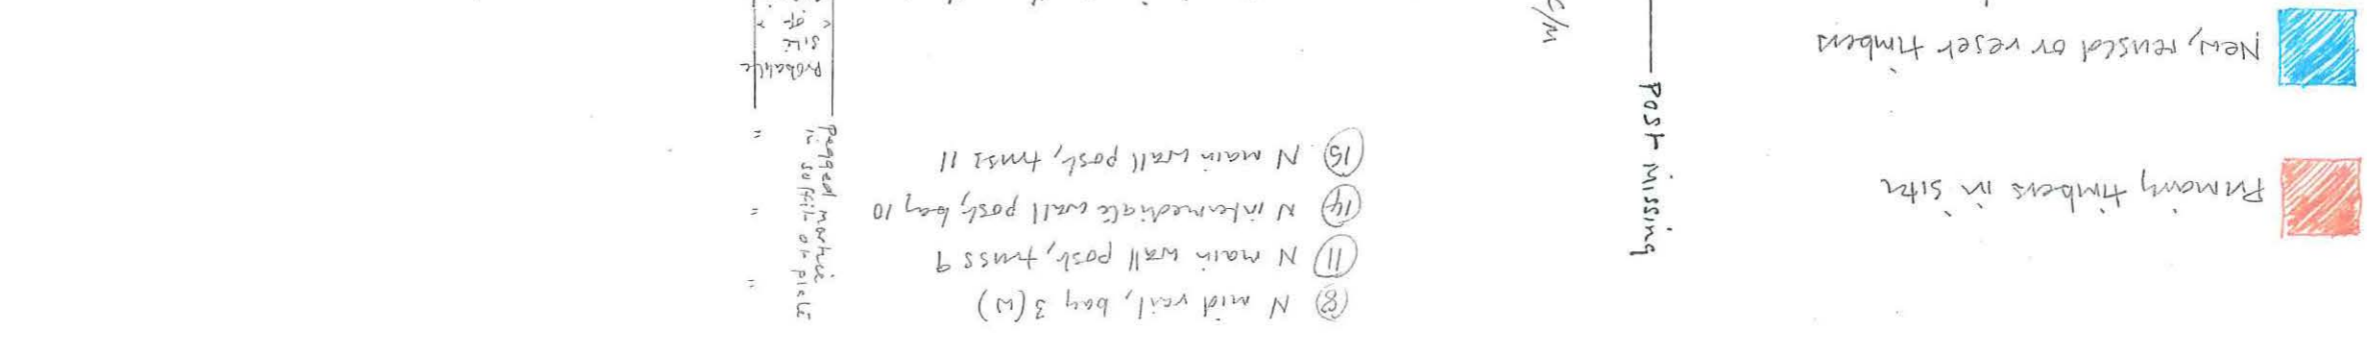 Primary timbers in situ
New, reused or reset timbers
Post missing
C/M
(8) N mid rail, bay 3 (W)
(11) N main wall post, truss 9
(14) N intermediate wall post, bay 10
(15) N main wall post, truss 11
Pegged mortice
in soffit of plate
Probable